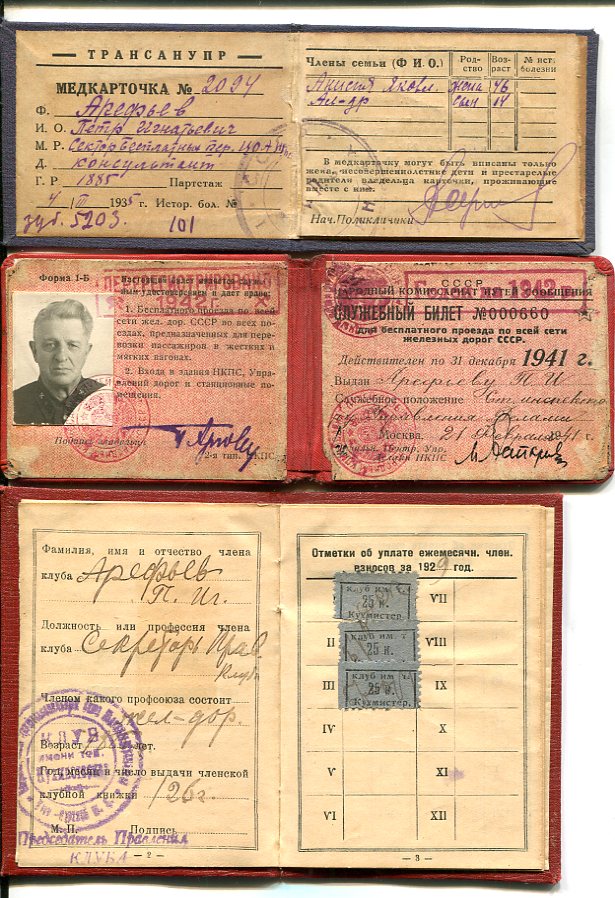 ТРАНСАНУПР
МЕДКАРТОЧКА № 2094
Ф. Арефьев
И. О. Пётр Игнатьевич
М. Р. Сектор бесплатных пер.
Д. Консультант
Г. Р 1885 Партстаж
4/II 1935 г. Истор. бол. №
зуб. 5203. 101
Члены семьи (Ф И О.) Родство Возраст № ист. болезни
Яковл. жена 46
Ал-др сын 14
В медкарточку могут быть вписаны только
жена, несовершеннолетние дети и престарелые
родители владельца карточки, проживающие
вместе с ним.
Нач. Поликлиники
Форма 1-Б
Настоящий билет является служебным
удостоверением и дает право:
1. Бесплатного проезда по всей
сети жел. дор. СССР во всех поездах,
предназначенных для перевозки
пассажиров в жестких и
мягких вагонах.
2. Входа в здания НКПС, Управлений
дорог и станционные помещения.
Подпись владельца
2-я тип. НКПС.
СССР
1942
НАРОДНЫЙ КОМИССАРИАТ ПУТЕЙ СООБЩЕНИЯ
СЛУЖЕБНЫЙ БИЛЕТ № 000660
для бесплатного проезда по всей сети
железных дорог СССР.
Действителен по 31 декабря 1941 г.
Выдан Арефьеву П И
Служебное положение Ст. инспектор
Управления
Москва, 21 февраля 1941 г.
Центр. Упр.
НКПС
Фамилия, имя и отчество члена
клуба Арефьев
П. Иг.
Должность или профессия члена
клуба Секретарь Прав
Клуба
Членом какого профсоюза состоит
жел-дор.
Возраст лет.
Год, месяц и число выдачи членской
клубной книжки /26г.
М. П. Подпись
КЛУБ
ИМЕНИ ТОВ.
Председатель Правления
КЛУБА
- 2 -
Отметки об уплате ежемесячн. член.
взносов за 1929 год.
клуб им. т.
25 к.
Кухмистер.
VII
II
клуб им. т
25 к.
VIII
III
клуб им. т.
25 к.
Кухмистер.
IX
IV X
V XI
VI XII
- 3 -